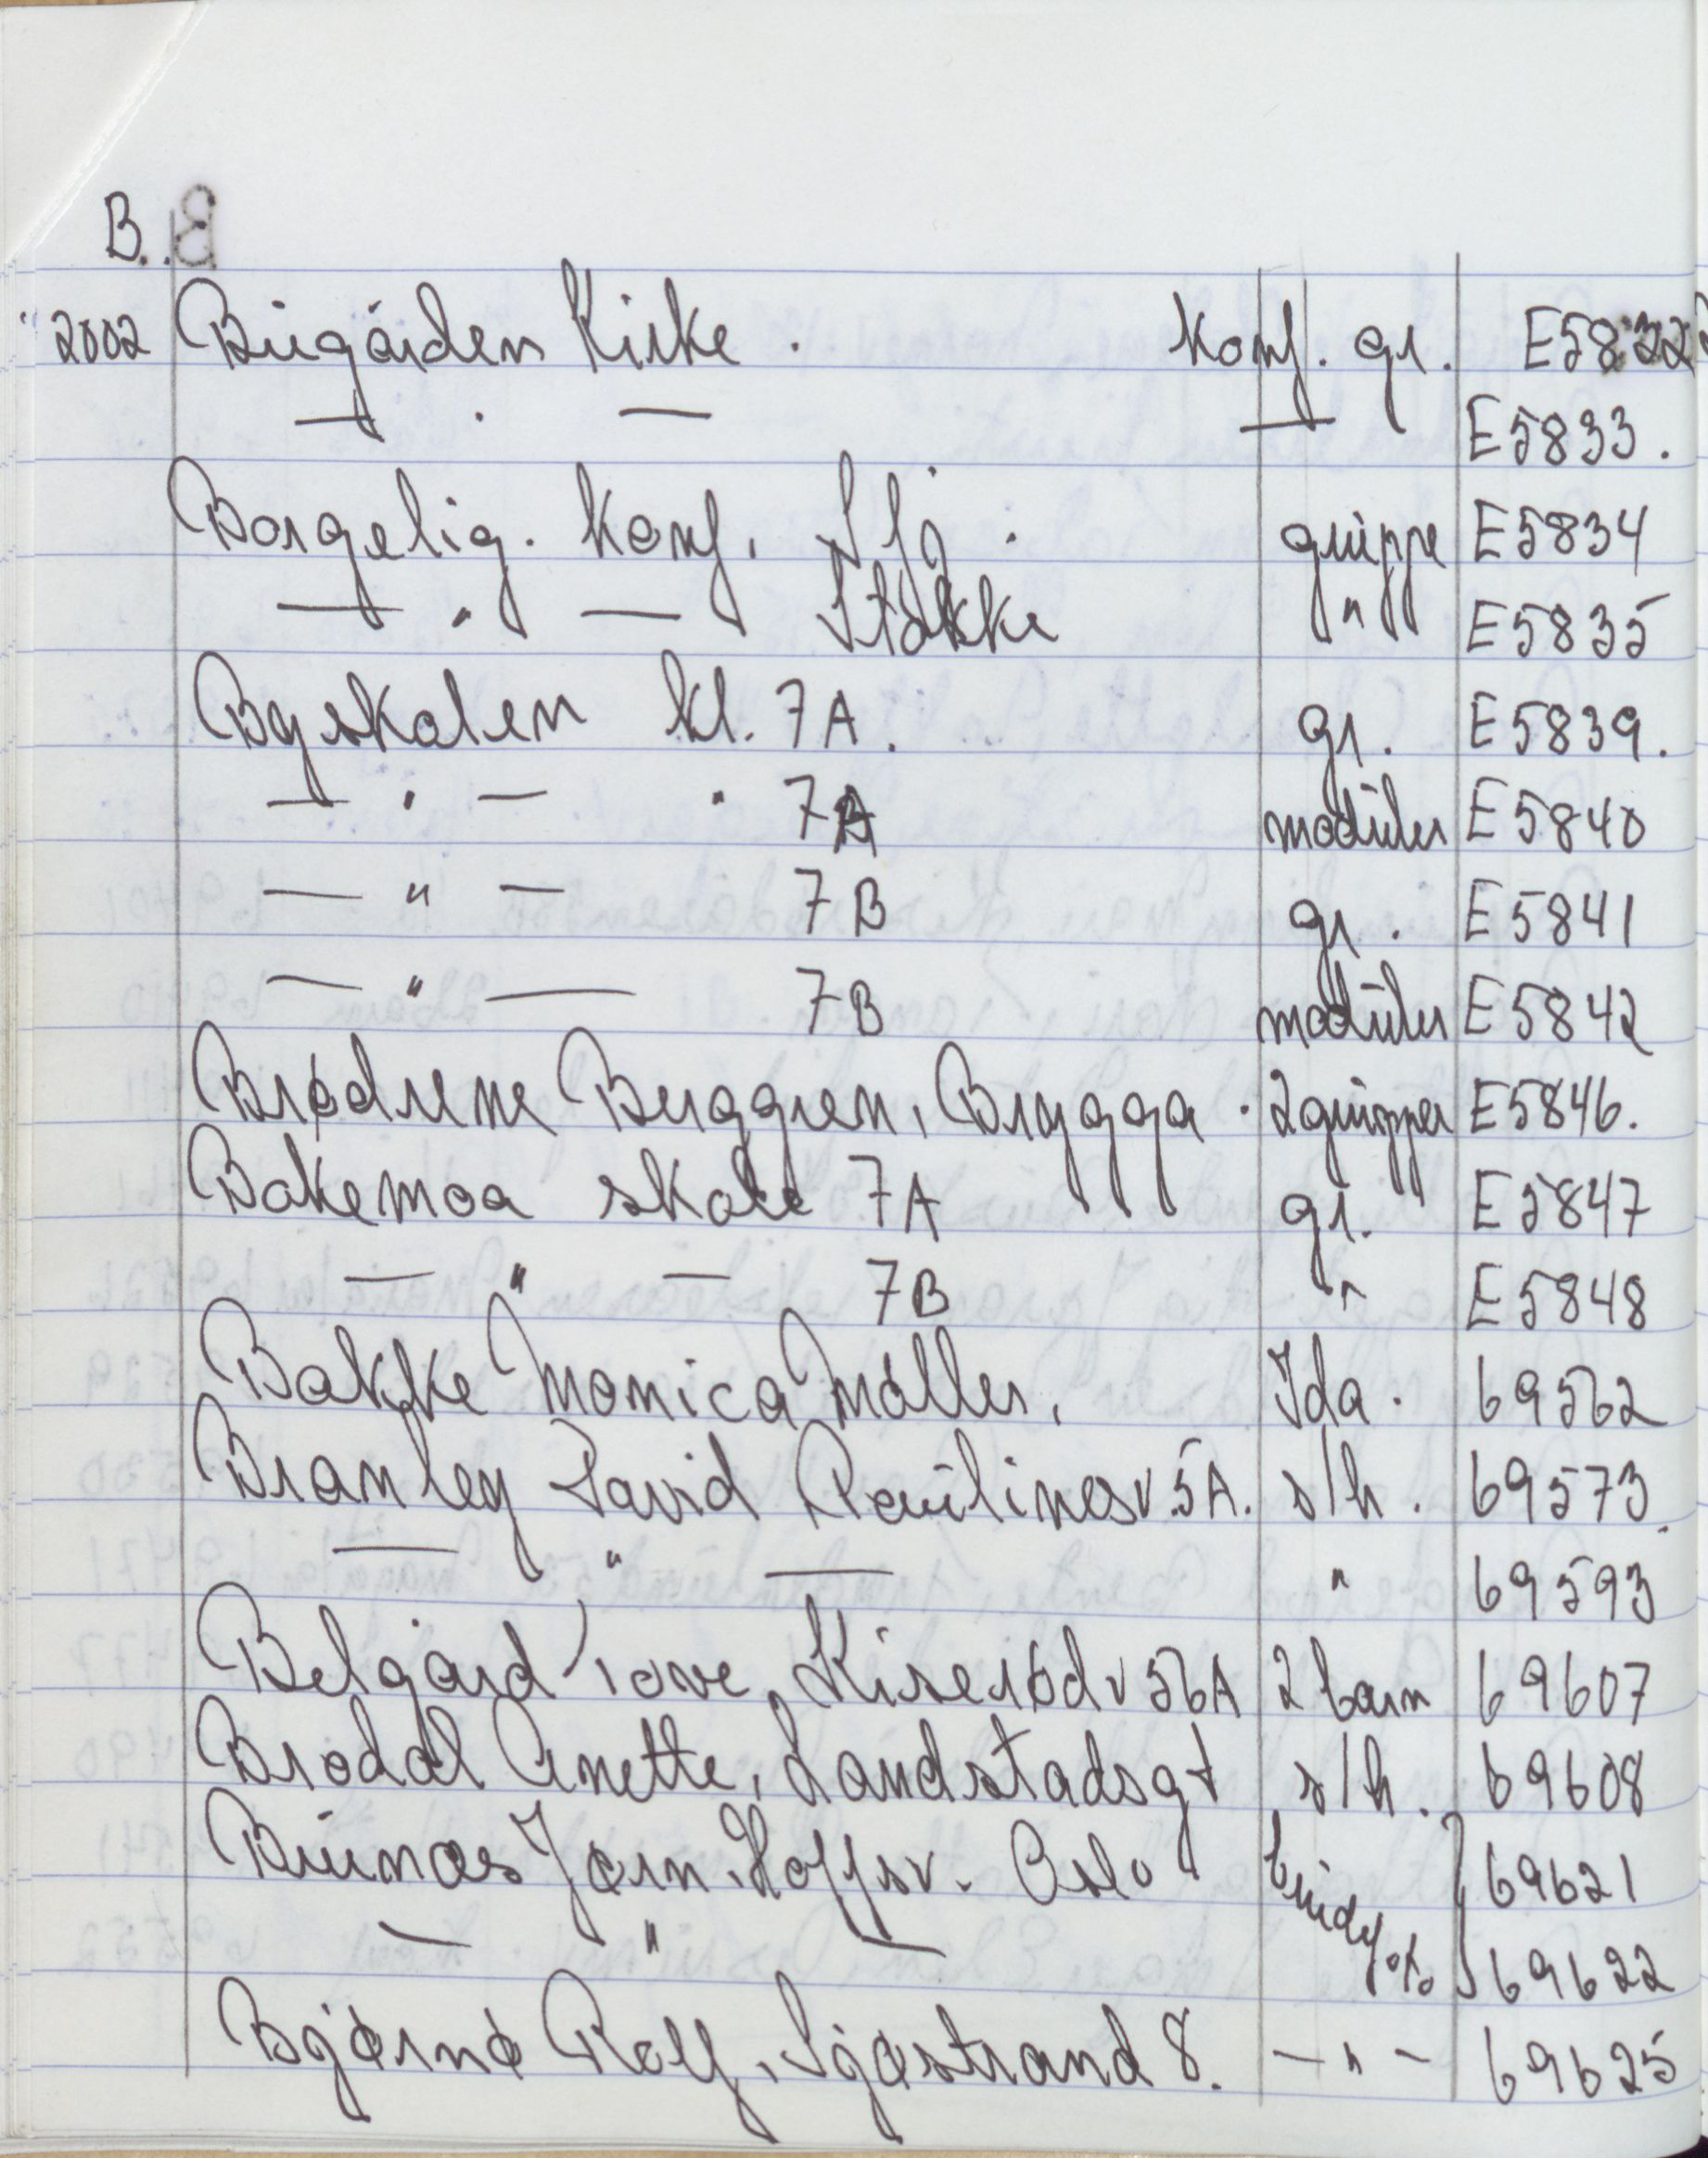 B.
2002 Bugården Kirke. Konf. gr. E5832
— . — — E5833.
Borgelig. Konf. Sfj. gruppe E5834
— " — Stokke " E5835
Byskolen kl. 7A. gr. E5839.
— " — " 7A moduler E5840
— " — 7B gr. E5841
— " — 7B moduler E5842
Brødrene Berggren, Brygga. 2grupper E5846.
Bakemoa skole 7A gr. E5847
— " — 7B " E5848
Bakke Monica Møller, Ida. 69562
Branley David Paulinesv 5A. s/h. 69573.
— " — " 69593
Belgård Tove, Kiserødv 56A 2 barn 69607
Brodal Anette, Landstadsgt s/h. 69608
Buinæs Jørn. Hoffsv. Oslo brudef. 69621
— " — 69622
Bjørnø Rolf, Sjøstrand 8. — " — 69625